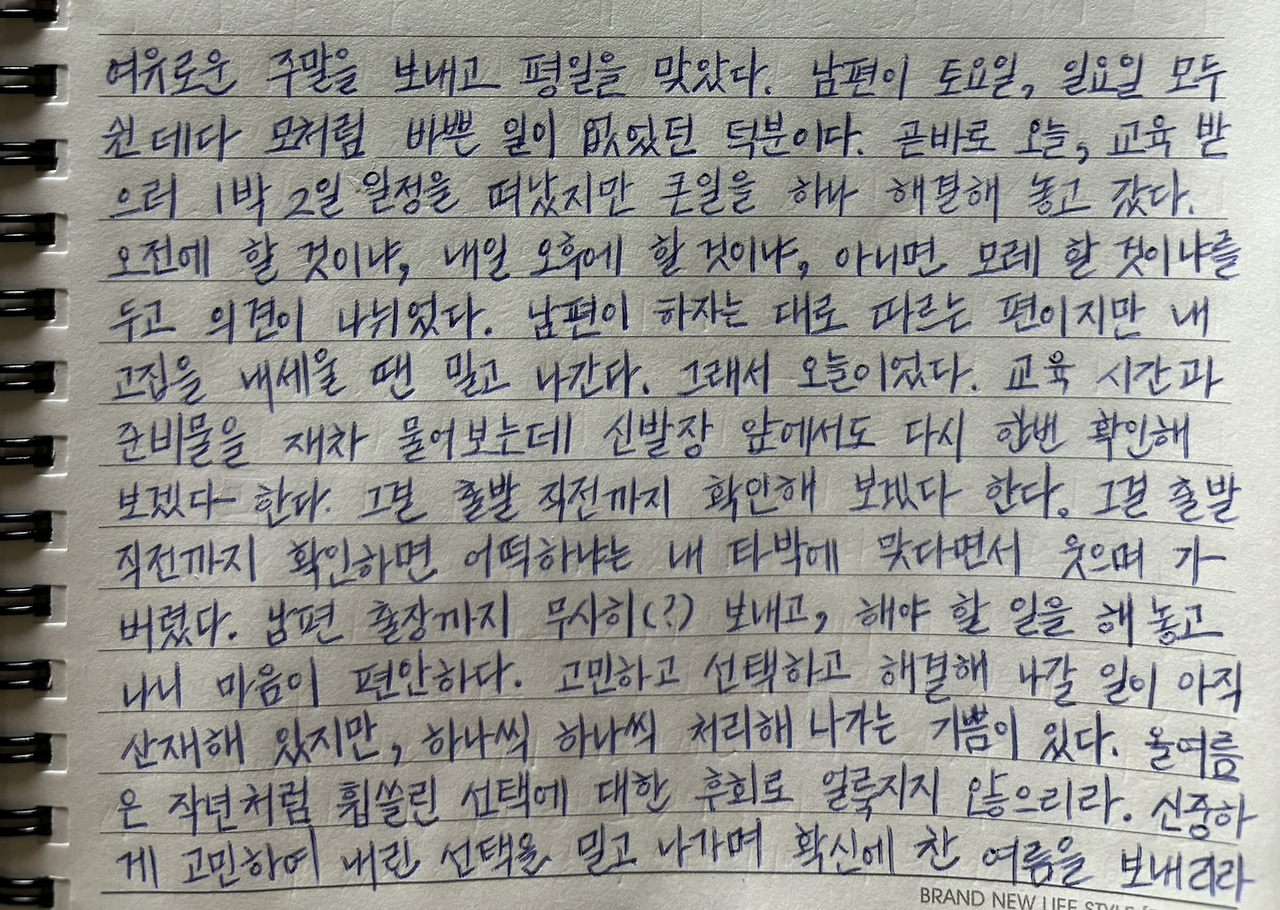 여유로운 주말을 보내고 평일을 맞았다. 남편이 토요일, 일요일 모두
쉰데다 모처럼 바쁜 일이 없었던 덕분이다. 곧바로 오늘, 교육 받
으러 1박 2일 일정을 떠났지만 큰일을 하나 해결해 놓고 갔다.
오전에 할 것이냐, 내일 오후에 할 것이냐, 아니면 모레 할 것이냐를
두고 의견이 나뉘었다. 남편이 하자는 대로 따르는 편이지만 내
고집을 내세울 땐 밀고 나간다. 그래서 오늘이었다. 교육 시간과
준비물을 재차 물어보는데 신발장 앞에서도 다시 한번 확인해
보겠다 한다. 그걸 출발 직전까지 확인해 보겠다 한다. 그걸 출발
직전까지 확인하면 어떡하냐는 내 타박에 맞다면서 웃으며 가
버렸다. 남편 출장까지 무사히(?) 보내고, 해야 할 일을 해 놓고
나니 마음이 편안하다. 고민하고 선택하고 해결해 나갈 일이 아직
산재해 있지만, 하나씩 하나씩 처리해 나가는 기쁨이 있다. 올여름
은 작년처럼 휩쓸린 선택에 대한 후회로 얼룩지지 않으리라. 신중하
게 고민하여 내린 선택을 밀고 나가며 확신에 찬 여름을 보내리라
BRAND NEW LIFE STYLE